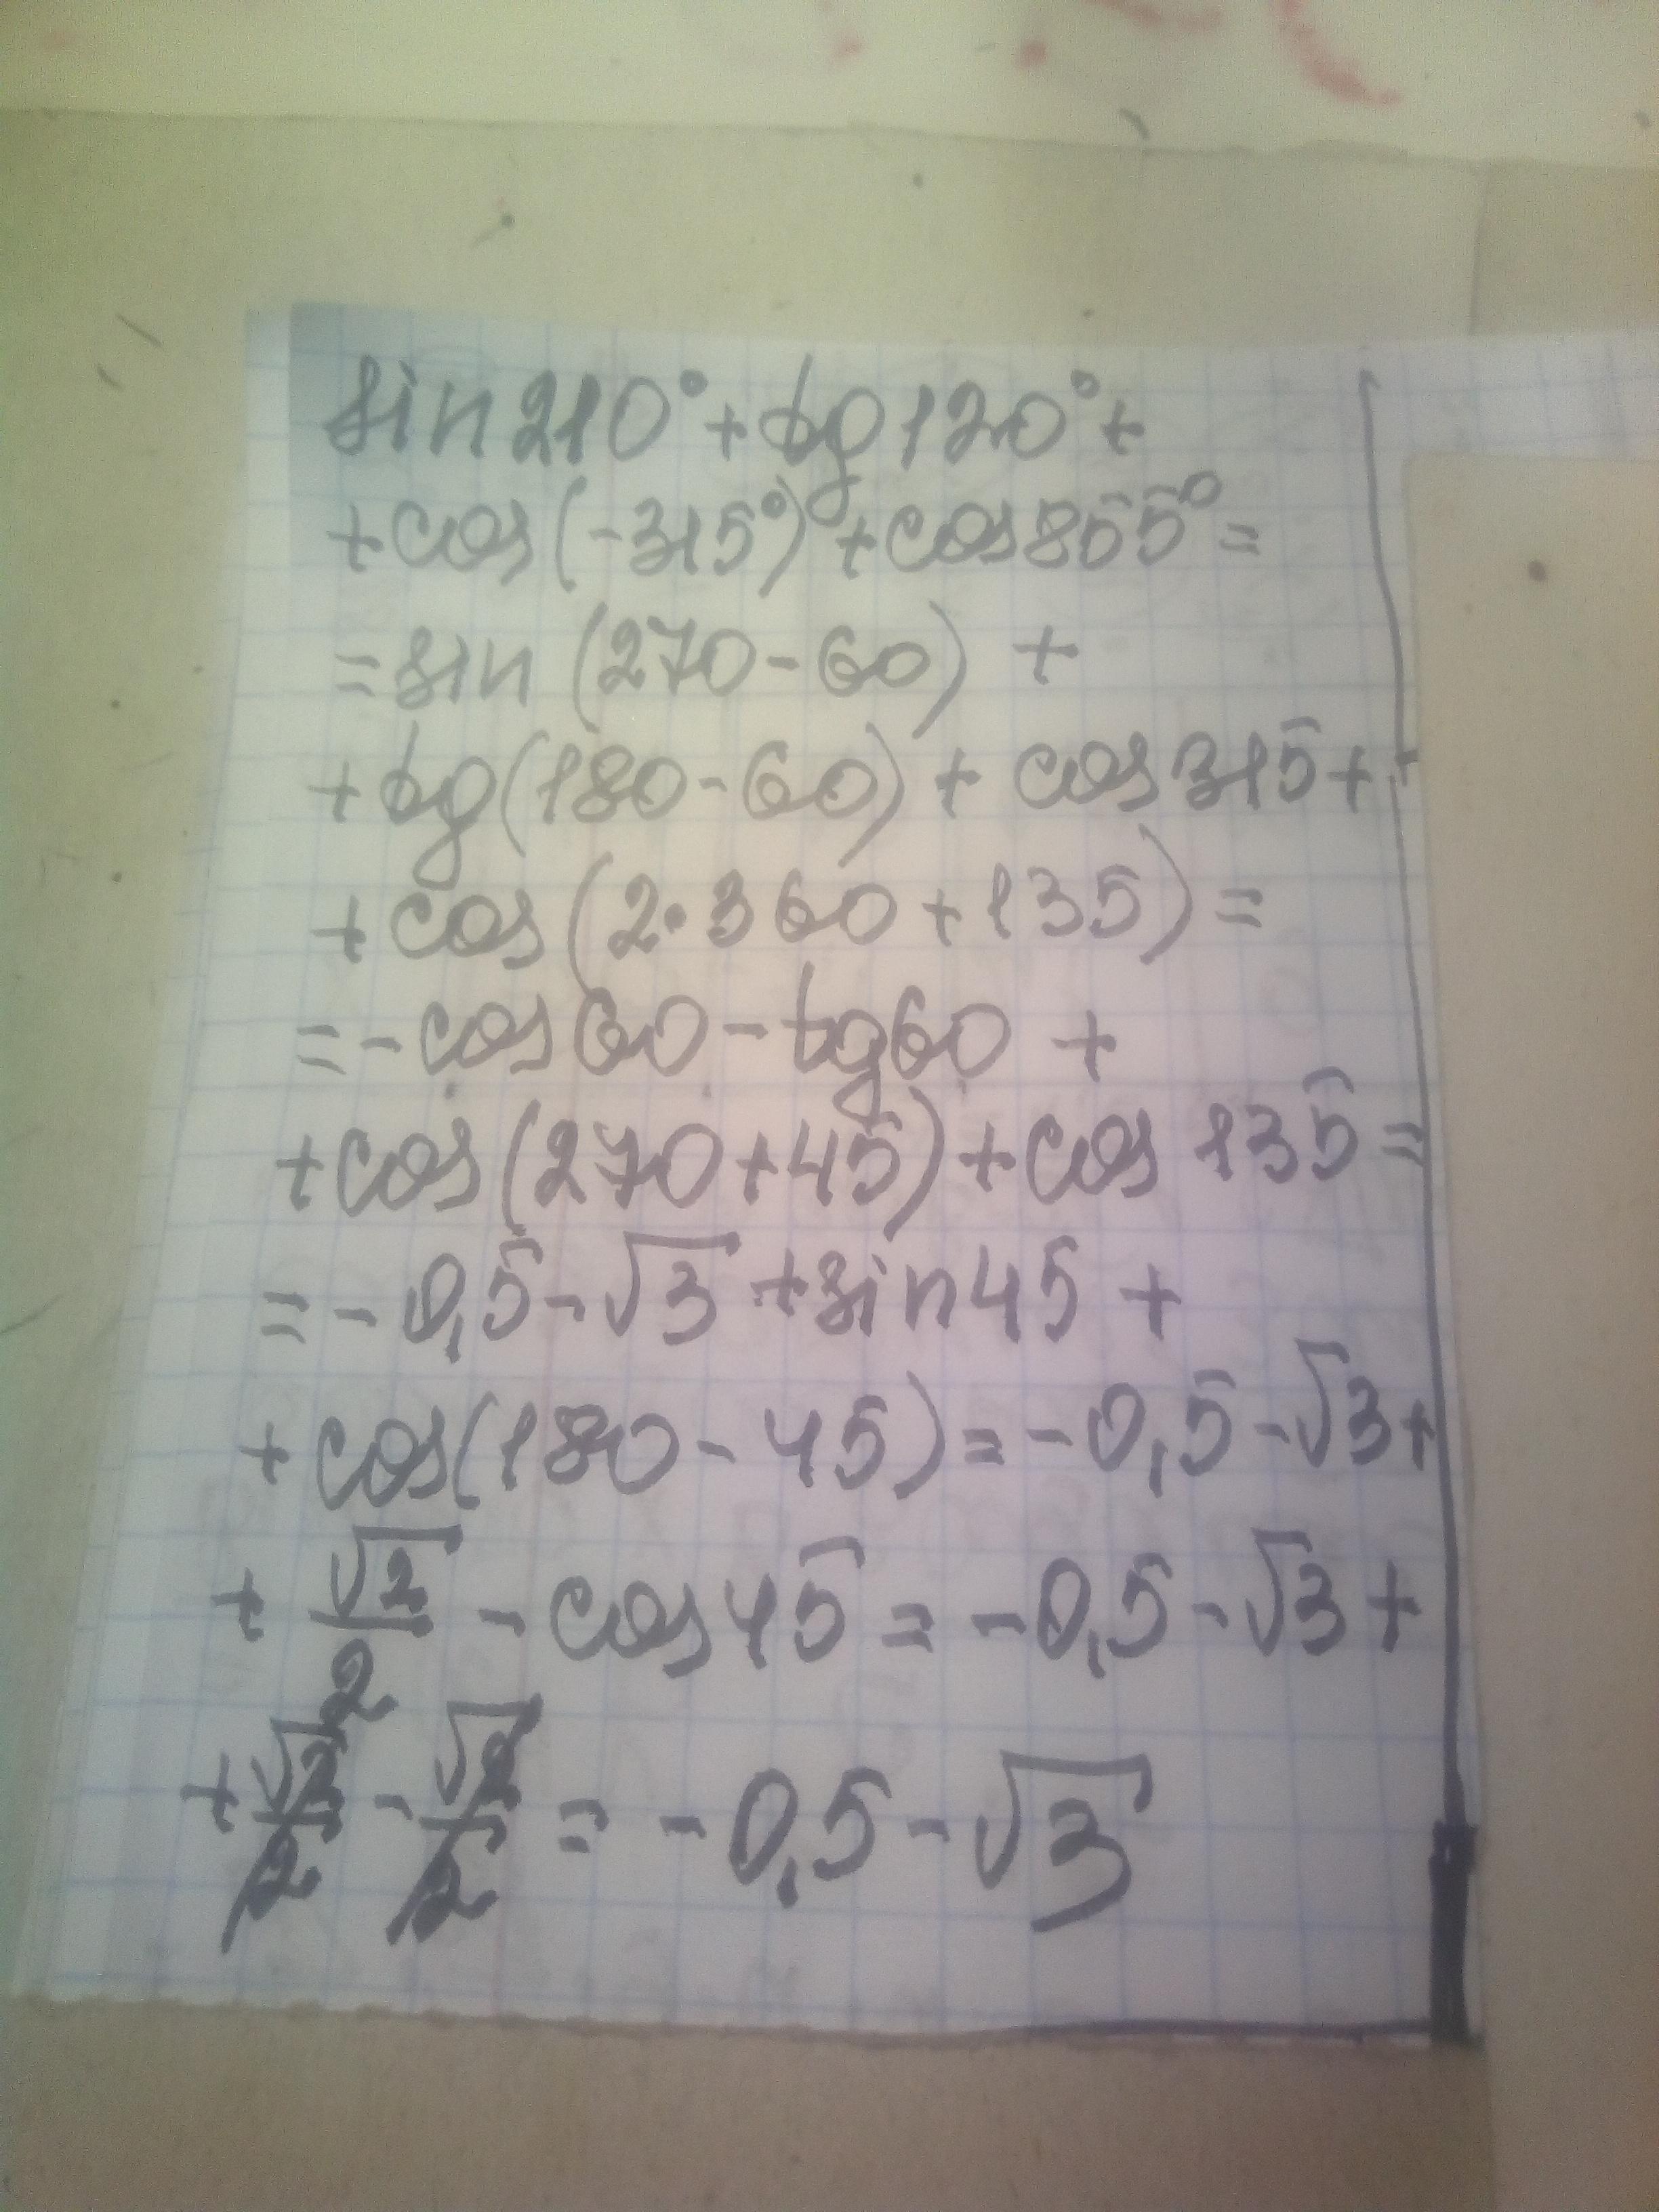 sin210°+tg120°+
+cos(-315°)+cos855°=
=sin(270-60)+
+tg(180-60)+cos315+
+cos(2·360+135)=
=-cos60-tg60+
+cos(270+45)+cos135=
=-0,5-√3+sin45+
+cos(180-45)=-0,5-√3+
+√2/2-cos45=-0,5-√3+
+√2/2-√2/2=-0,5-√3